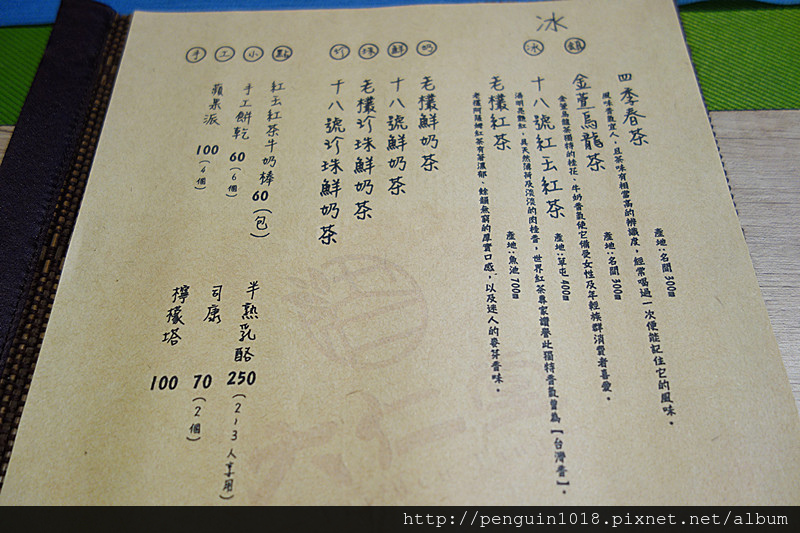 冰
冰 館
四季春茶
產地:名間 300m
風味香氣宜人,且茶味有相當高的辨識度,經常喝過一次便能記住它的風味。
金萱烏龍茶
產地:名間 300m
金萱烏龍茶獨特的桂花、牛奶香氣使它備受女性及年輕族群消費者喜愛。
十八號紅玉紅茶
產地:草屯 400m
湯明亮艷紅,具天然薄荷及淡淡的肉桂香,世界紅茶專家讚譽此獨特香氣曾為【台灣香】。
老欉紅茶
產地:魚池 700m
老欉阿薩姆紅茶有著濃郁、餘韻無窮的厚實口感,以及迷人的麥芽香味。
珍 珠 鮮 奶
老欉鮮奶茶
十八號鮮奶茶
老欉珍珠鮮奶茶
十八號珍珠鮮奶茶
手 工 小 點
紅玉紅茶牛奶棒 60(包)
手工餅乾 60(6個)
蘋果派 100(4個)
半熟乳酪 250(2~3人享用)
司康 70(2個)
檸檬塔 100
http://penguin1018.pixnet.net/album